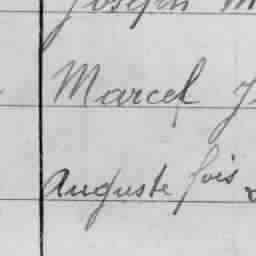 Joseph M
Marcel J
Auguste fois